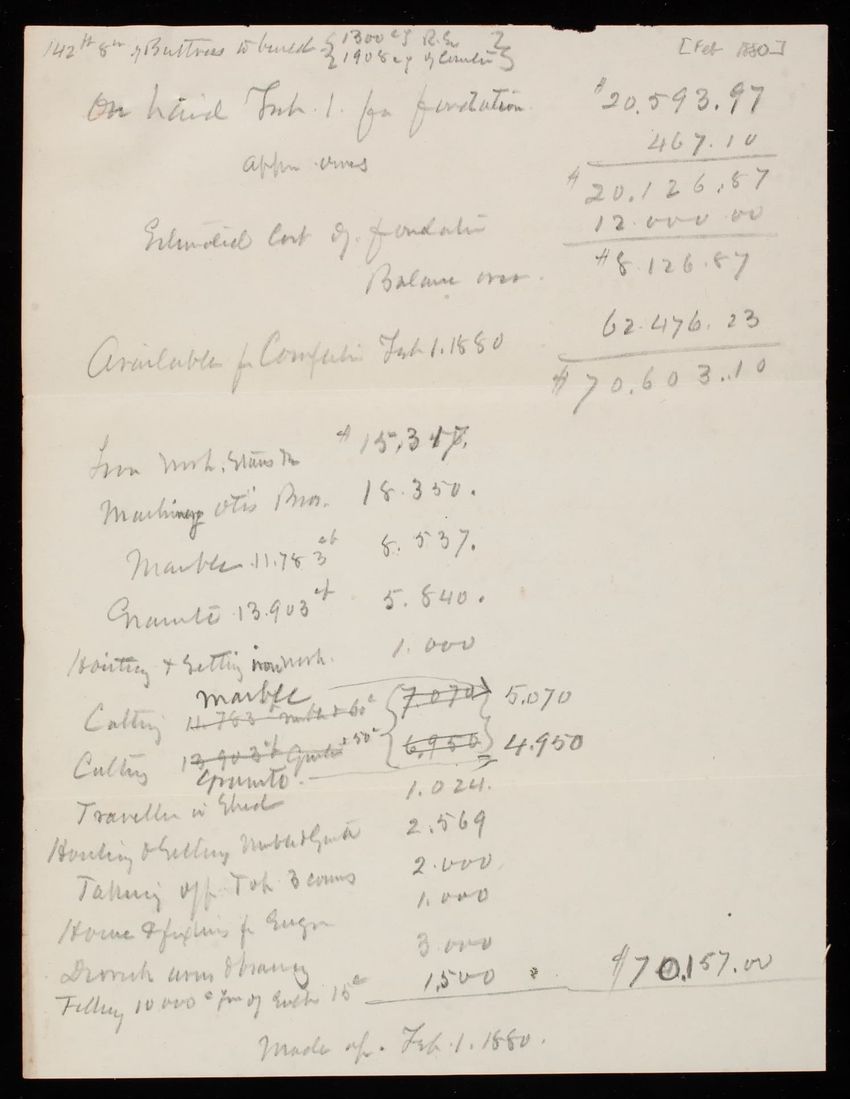 142 ft 8 in of Buttress to build { 1300 cy R.S. }
{ 1908 cy of Concrete }
[Feb 1880]
On hand Feb. 1. for foundation $20,593.97
467.10
$20,126.87
Estimated Cost of foundation 12.000 00
Balance over. $8.126.87
Available for Completion Feb 1. 1880 62.476.23
$70.603.10
Iron work, Stairs &c $15,317.
Machinery Otis Bros. 18.350.
Marble 11.783 cf 8.537.
Granite 13.903 cf 5.840.
Hoisting & Setting ironwork. 1.000
Cutting marble 11.783 cf marble @ 60c 7.070 5.070
Cutting 13.903 cf Granite @ 50c 6,950 4.950
Granite.
Traveller 1.024.
Hoisting & Setting Marble & Granite 2.569
Taking off Top 3 courses 2.000
House & fixtures for Engr 1.000
Derrick 3.000
Filling 10000 c Yds of Earth 15c 1,500 $70,157.00
Made up. Feb. 1. 1880.